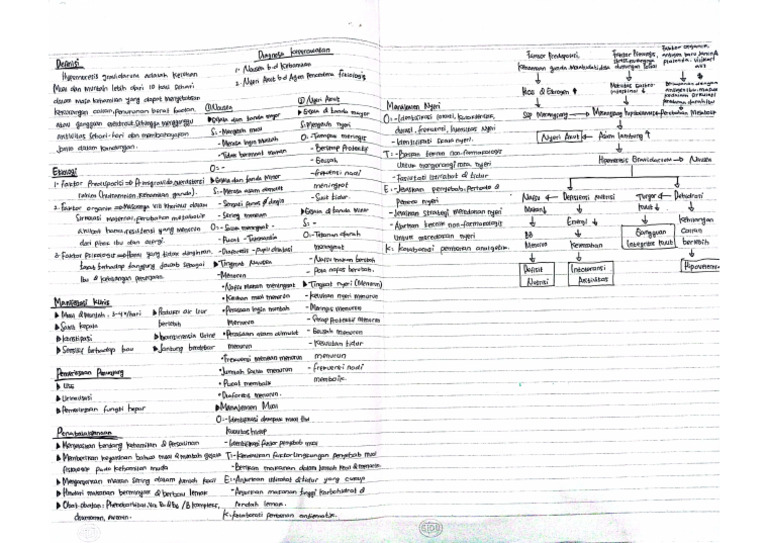 Definisi
Hyperemesis gravidarum adalah keluhan
Mual dan muntah lebih dari 10 kali sehari
dalam masa kehamilan yang dapat mengakibatkan
kekurangan cairan, penurunan berat badan,
atau gangguan elektrolit sehingga mengganggu
aktivitas sehari-hari dan membahayakan
janin dalam kandungan.
Etiologi
1. Faktor Predisposisi → Primigravida, overdistensi
rahim (hidramnion, kehamilan ganda).
2. Faktor organik → Masuknya vili khorialis dalam
Sirkulasi Maternal, perubahan metabolik
akibat hamil, resistensi yang menurun
dari pihak ibu dan alergi.
3. Faktor Psikologis →
takut terhadap tanggung jawab sebagai
ibu & kehilangan pekerjaan.
Manifestasi Klinis
▸ Mual & Muntah : 3-4x/hari
▸ Sakit kepala
▸ Konstipasi
▸ Sensitif terhadap bau
▸ Produksi air liur
berlebih
▸ Inkontinensia Urine
▸ Jantung berdebar
Pemeriksaan Penunjang
▸ USG
▸ Urinalisis
▸ Pemeriksaan fungsi hepar
Penatalaksanaan
▸ Menjelaskan tentang kehamilan & Persalinan
▸ Memberikan keyakinan bahwa mual & muntah gejala
fisiologis pada kehamilan muda
▸ Menganjurkan makan sering dalam jumlah kecil
▸ Hindari makanan berminyak & berbau lemak
▸ Obat-obatan : Phenobarbital, Vit B1 & B6 / B kompleks,
dramamin, avomin.
Diagnosa Keperawatan
1. Nausea b.d Kehamilan
2. Nyeri Akut b.d Agen Pencedera Fisiologis
① Nausea
▸ Gejala dan tanda mayor
S: - Mengeluh mual
- Merasa ingin Muntah
- Tidak berminat makan
O: -
▸ Gejala & tanda Minor
S: - Merasa asam dimulut
- Sensasi panas / dingin
- Sering menelan
O: - Saliva meningkat
- Pucat - Takikardia
- Diaforesis - Pupil dilatasi
▸ Tingkat Nausea
- Menurun
• Nafsu makan meningkat
• Keluhan mual menurun
• Perasaan ingin muntah
Menurun
• Perasaan asam dimulut
menurun
• Frekuensi menelan menurun
• Jumlah saliva menurun
• Pucat membaik
• Diaforesis menurun.
▸ Manajemen Mual
O: - Identifikasi dampak mual thd
kualitas hidup
- Identifikasi faktor penyebab mual
T: - Kendalikan faktor lingkungan penyebab mual
- Berikan makanan dalam jumlah kecil & menarik
E: - Anjurkan istirahat & tidur yang cukup
- Anjurkan makanan tinggi karbohidrat &
rendah lemak.
K: Kolaborasi pemberian antiemetik.
② Nyeri Akut
▸ Gejala & tanda mayor
S: Mengeluh nyeri
O: - Tampak meringis
- Bersikap Protektif
- Gelisah
- Frekuensi nadi
meningkat
- Sulit tidur
▸ Gejala & tanda Minor
S: -
O: - Tekanan darah
meningkat
- Nafsu makan berubah
- Pola nafas berubah.
▸ Tingkat nyeri (Menurun)
- Keluhan nyeri menurun
- Meringis menurun
- Sikap Protektif menurun
- Gelisah menurun
- Kesulitan tidur
menurun
- Frekuensi nadi
membaik
Manajemen Nyeri
O: - Identifikasi lokasi, karakteristik,
durasi, frekuensi, Intensitas Nyeri
- Identifikasi skala nyeri
T: - Berikan teknik non-farmakologis
Untuk mengurangi rasa nyeri
- Fasilitasi istirahat & tidur
E: - Jelaskan penyebab, Periode &
Pemicu nyeri
- Jelaskan strategi meredakan nyeri
- Ajarkan teknik non-farmakologis
Untuk meredakan nyeri
K: Kolaborasi pemberian analgetik.
Faktor Predisposisi
HCG & Estrogen ↑
Faktor Organik,
Nyeri Akut ← Asam lambung ↑
Hiperemesis Gravidarum → Nausea
Nafsu
Makan ↓
BB
Menurun
Defisit
Nutrisi
Energi ↓
Kelemahan
Intoleransi
Aktivitas
Turgor
kulit ↓
Gangguan
Integritas kulit
Dehidrasi
Kehilangan
cairan
berlebih
Hipovolemia